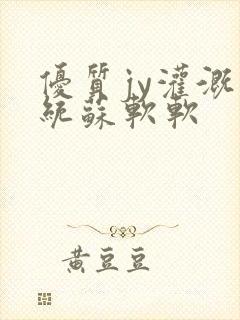 優質jy灌溉
統蘇軟軟
黃豆豆